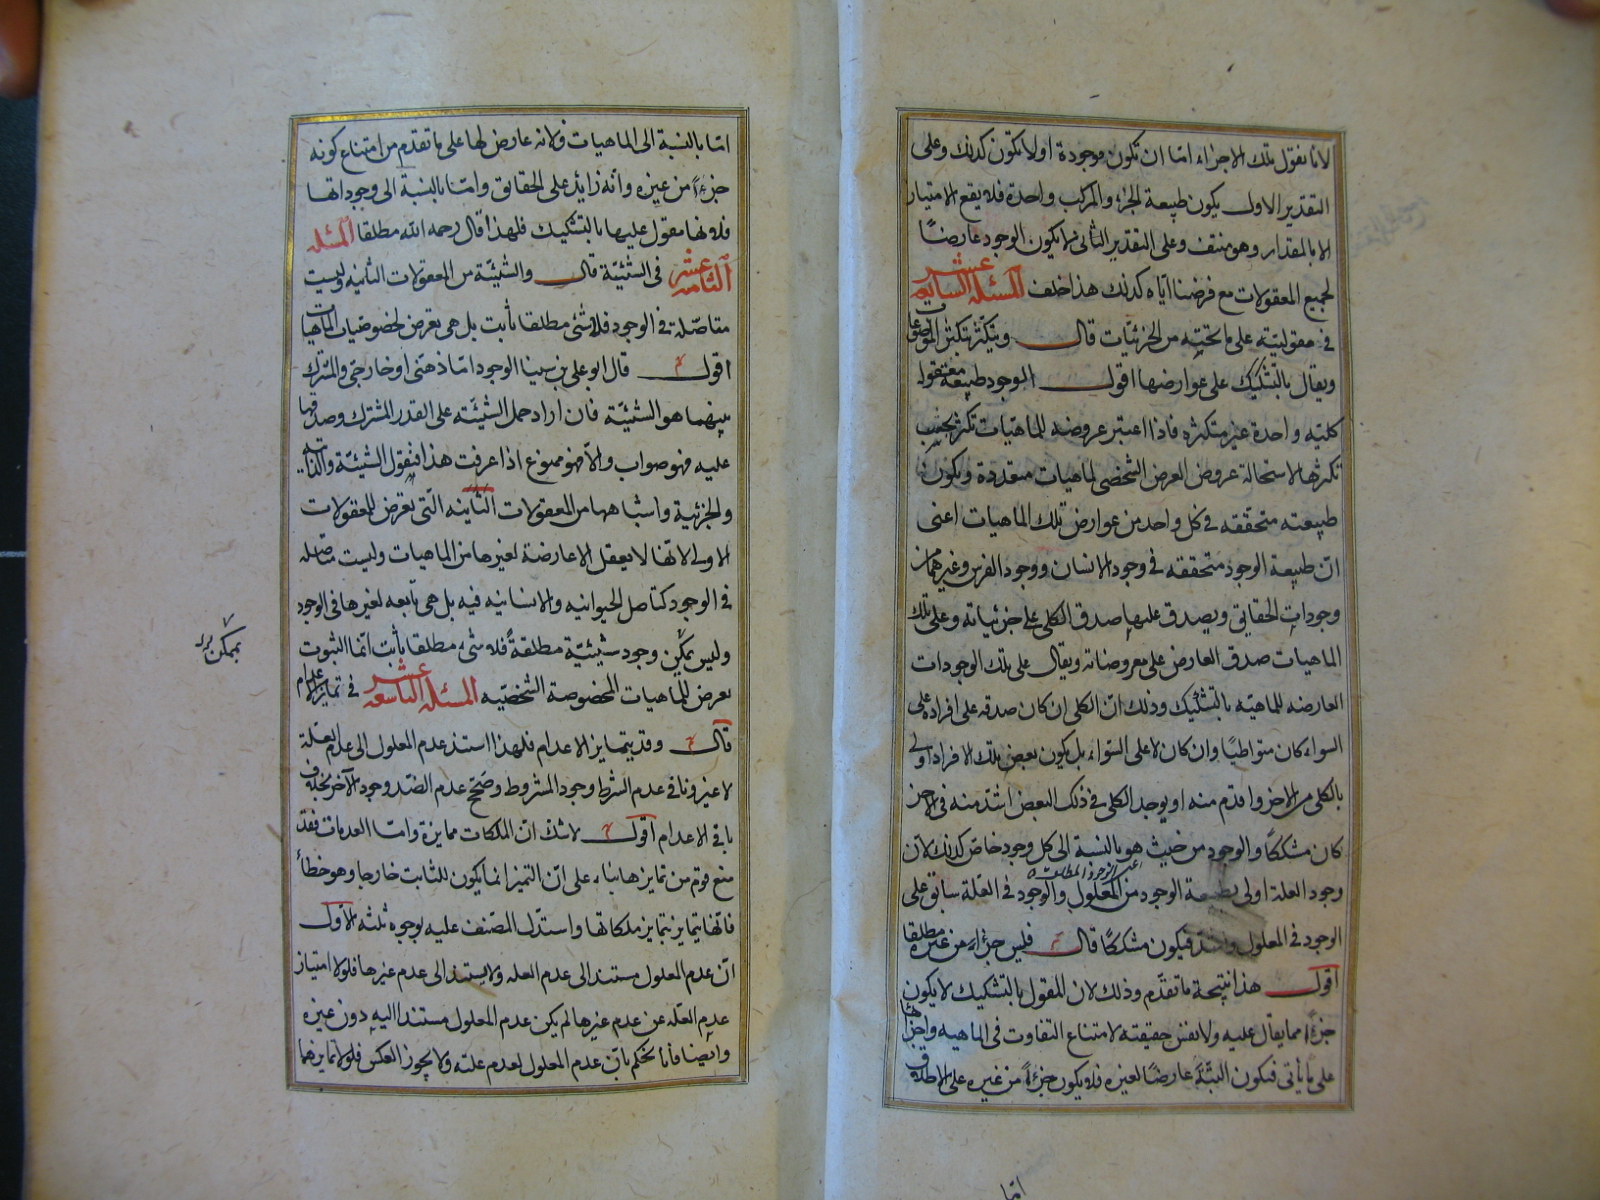 لانا نقول تلك الاجزاء امّا ان تكون موجودة اولا تكون كذلك وعلى
التقدير الاول يكون طبيعة الجزء والمركب واحدة فلا يقع الامتياز
الا بالمقدار وهو منتف وعلى التقدير الثانى لا يكون الوجود عارضًا
لجميع المعقولات مع فرضنا ايّاه كذلك هذا خلف المسئلة السابعة عشر
فى مقوليته على ما تحته من الجزئيّات قال ويتكثّر بتكثّر الموضوعات
ويقال بالتّشكيك على عوارضها اقول الوجود طبيعة معقولة
كليّه واحدة غير متكثره فاذا اعتبر عروضه للماهيّات تكثر بحسب
تكثرها لاستحالة عروض العرض الشخصى لماهيات متعددة ويكون
طبيعته متحقّقه فى كل واحد من عوارض تلك الماهيات اعنى
انّ طبيعة الوجود متحققه فى وجود الانسان ووجود الفرس وغيرهما من
وجودات الحقايق ويصدق عليها صدق الكلى على جزئياته وعلى تلك
الماهيات صدق العارض على معروضاته ويقال على تلك الوجودات
العارضه للماهيّه بالتشكيك وذلك انّ الكلى ان كان صدقه على افراده على
السواء كان متواطيًا وان كان لا على السّواء بل يكون بعض تلك الافراد اولى
بالكلى من الاخر واقدم منه او يوجد الكلى فى ذلك البعض اشدّ منه فى الاخر
كان مشككًا والوجود من حيث هو بالنسبة الى كل وجود خاصّ كذلك لانّ
اعنى الوجود المطلق
وجود العلة اولى بطبيعة الوجود من المعلول والوجود فى العلّة سابق على
الوجود فى المعلول واشدّ فيكون مشككًا قال فليس جزءاً من غيره مطلقا
اقول هذا نتيجة ما تقدّم وذلك لان المقول بالتشكيك لا يكون
جزءًا مما يقال عليه ولا نفس حقيقته لامتناع التفاوت فى الماهيه واجزائها
على ما يأتى فيكون البتّة عارضًا لغيره فلا يكون جزءًا من غيره على الاطلاق
امّا
امّا بالنسبة الى الماهيات فلانه عارض لها على ما تقدم من امتناع كونه
جزءًا من غيره وانّه زايد على الحقائق وامّا بالنسبة الى وجوداتها
فلانها مقول عليها بالتشكيك فلهذا قال رحمه الله مطلقا المسئله
الثامنه عشر فى الشّيئيّة قال والشّيئيّة من المعقولات الثانيه وليست
متاصّلة فى الوجود فلا شئ مطلقا ثابت بل هى تعرض لخصوصيات الماهيات
اقول قال ابو على بن سينا الوجود امّا ذهنى او خارجى والمشترك
بينهما هو الشيئيّة فان اراد حمل الشيئيّه على القدر المشترك وصدقها
عليه فهو صواب والّا فهو ممنوع اذا عرفت هذا فنقول الشيئيّة والذاتية
والجزئية واشباهها من المعقولات الثانيه الّتى تعرض للمعقولات
الاولى لانّها لا يعقل الا عارضة لغيرها من الماهيات وليست متاصّله
فى الوجود كتاصل الحيوانيه والانسانيه فيه بل هى تابعه لغيرها فى الوجود
وليس يمكن وجود شيئيّة مطلقةً فلا شئ مطلقا ثابت انّما الثبوت
يمكن
يعرض للماهيات المخصوصة الشخصّيه المسئلة التاسعه عشر فى تمايز الاعدام
قال وقد يتمايز الاعدام فلهذا استند عدم المعلول الى عدم العلة
لا غير ونافى عدم الشرط وجود المشروط وصَحّح عدم الضّد وجود الآخر بخلاف
باقى الاعدام اقول لا شك انّ الملكات متمايزة وامّا العدمات فقد
منع قوم من تمايزها بناء على انّ التميز انما يكون للثابت خارجا وهو خطأ
فانّها يتمايز بتمايز ملكاتها واستدّل المصّنف عليه بوجوه ثلثه الاوّل
انّ عدم المعلول مستند الى عدم العله ولا يستند الى عدم غيرها فلولا امتياز
عدم العلّه عن عدم غيرها لم يكن عدم المعلول مستندا اليه دون غيره
وايضا فانا نحكم بانّ عدم المعلول لعدم علته ولا يجوز العكس فلولا تمايزهما